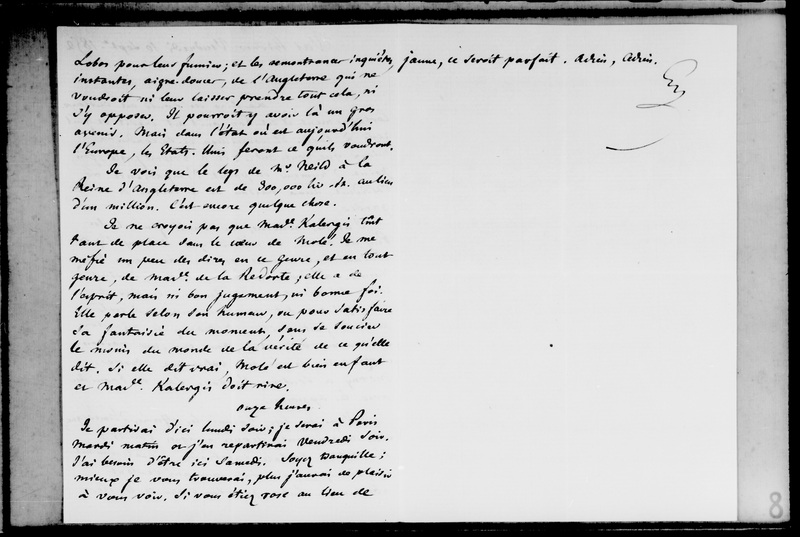 Lobos pour leur fumier; et les remontrances inquiètes,
instantes, aigri-douces, de l'Angleterre qui ne
voudroit ni leur laisser prendre tout cela, ni
s'y opposer. Il pourroit y avoir là un gros
avenir. Mais dans l'état où est aujourd'hui
l'Europe, les Etats-Unis feront ce qu'ils voudront.
Je vois que le legs de Mr. Neild à la
Reine d'Angleterre est de 300,000 liv. st. au lieu
d'un million. C'est encore quelque chose.
Je ne croyois pas que Made. Kalergis tînt
tant de place dans le cœur de Molé. Je me
méfie un peu des dires en ce genre, et en tout
genre, de made. de la Redorte; elle a de
l'esprit, mais ni bon jugement, ni bonne foi.
Elle parle selon son humeur, ou pour satisfaire
sa fantaisie du moment, sans se soucier
le moins du monde de la vérité de ce qu'elle
dit. Si elle dit vrai, Molé est bien enfant
et Made. Kalergis doit rire.
onze heures.
Je partirai d'ici lundi soir; je serai à Paris
mardi matin et j'en repartirai vendredi soir.
J'ai besoin d'être ici Samedi. Soyez tranquille;
mieux je vous trouverai, plus j'aurai de plaisir
à vous voir. Si vous étiez rose au lieu de
jaune, ce seroit parfait. Adieu, Adieu.
8